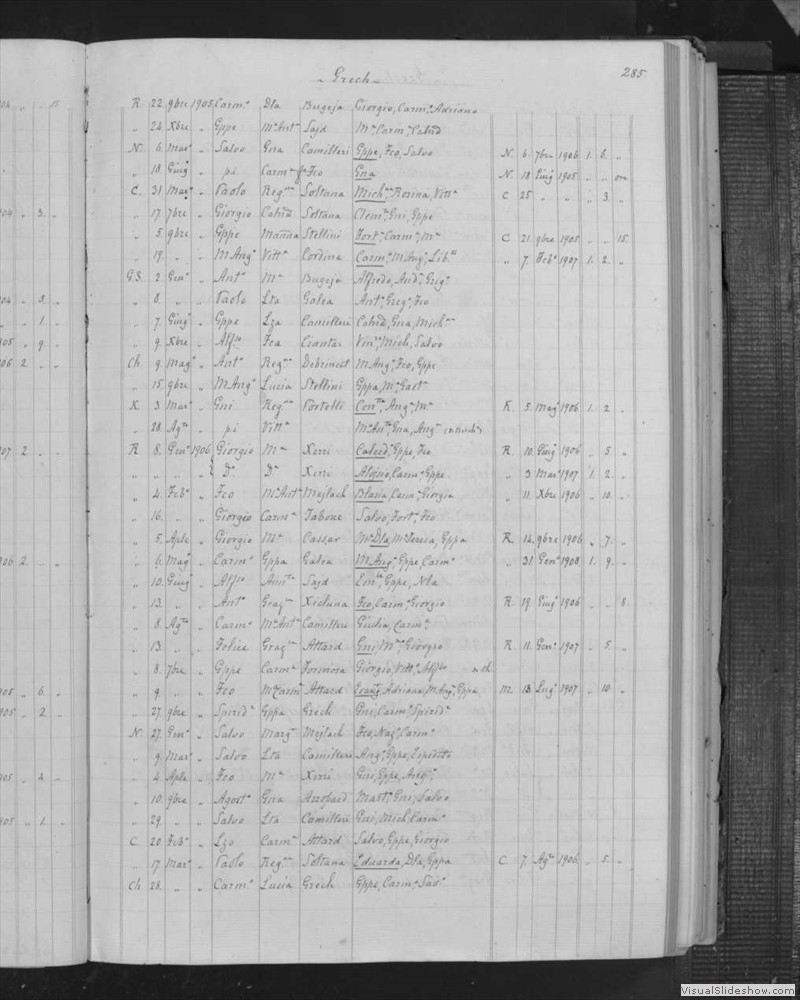 Grech
285.
R 22. 9bre 1905 Carmo Dla Bugeja Giorgio, Carmo, Adriano
" 24. Xbre " Gppe Ma Anta Sajd Ma Carma Catnd
N. 6. Maro " Salvo Gna Camilleri Gppe, Fco, Salvo N. 6. 7bre 1906 1. 6. "
" 18. Giugo " pi Carma Fco Gna N. 18 Lugo 1905 " "
C. 31 Maro " Paolo Regna Soltana Micha, Rosina, Vitta C 25 " " " 3. "
" 17. 7bre " Giorgio Catnd Soltana Clema, Gni, Gppe
" 5. 9bre " Gppe Manna Stellini Forta, Carma, Ma C 21. 9bre 1905 " " 15.
" 19. " " M Ango Vitta Cordina Carmo, M Ango, Liba " 7. Febo 1907 1. 2. "
G.S. 2. Geno " Anto Ma Bugeja Alfredo, Anda, Grego
" 8. " " Paolo Lta Galea Anto, Grego, Fco
" 7. Giugo " Gppe Lza Camilleri Catnd, Gna, Micha
" 9. Xbre " Alfso Fca Ciantar Vinzo, Mich, Salvo
Ch. 9. Mago " Anto Regna Debrincat M Ango, Fco, Gppe
" 15. 9bre " M Ango Lucia Stellini Gppa, Ma Gaeta
X. 3. Maro " Gni Regna Portelli Conta, Anga, Ma X. 5. Mago 1906 1. 2. "
" 28. Agto " pi Vitta Ma Anta, Gna, Anga
R 8. Geno 1906 Giorgio Ma Xerri Catnd, Gppe, Fco R. 10. Giugo 1906 " 5. "
" " " " Do Do Xerri Aloisio, Carmo, Gppe " 3. Maro 1907 1. 2. "
" 4. Febo " Fco Ma Anta Mejlach Blasia, Carma, Giorgia " 11. Xbre 1906 " 10. "
" 16. " " Giorgio Carma Tabone Salvo, Forto, Fco
" 5. Aple " Giorgio Ma Cassar Ma Dla, Ma Teresa, Gppa R. 14. 9bre 1906 " 7. "
" 6. Mago " Carmo Gppa Galea M Ango, Gppe, Carmo " 31 Geno 1908 1. 9. "
" 10. Giugo " Alfso Annta Sajd Ema, Gppe, Nla
" 13. " " Anto Graza Xicluna Fco, Carmo, Giorgio R. 19. Giugo 1906 " " 8.
" 8. Agto " Carmo Ma Anta Camilleri Giulia, Carma
" 13. " " Felice Graza Attard Gni, Ma, Giorgio R. 11. Geno 1907 " 5. "
" 8. 7bre " Gppe Carma Formosa Giorgio, Vitto, Alfso
" 9. " " Fco Ma Carma Attard Evanga, Adriana, M Anga, Gppa M. 13. Lugo 1907 " 10. "
" 27. 9bre " Spirido Gppa Grech Gni, Carmo, Spirido
N. 27. Geno " Salvo Marga Mejlach Fco, Nazo, Carmo
" 9. Maro " Salvo Lta Camilleri Ango, Gppe, Espedito
" 4. Aple " Fco Ma Xerri Gni, Gppe, Ango
" 10. 9bre " Agosto Gna Azzopard Marto, Gni, Salvo
" 29. " " Salvo Lta Camilleri Gni, Mich, Carmo
C. 20. Febo " Lzo Carma Attard Salvo, Gppe, Giorgio
" 17. Maro " Paolo Regna Soltana Eduarda, Dla, Gppa C 7. Ago 1906 " 5. "
Ch. 28. " " Carmo Lucia Grech Gppe, Carmo, Salo
VisualSlideshow.com